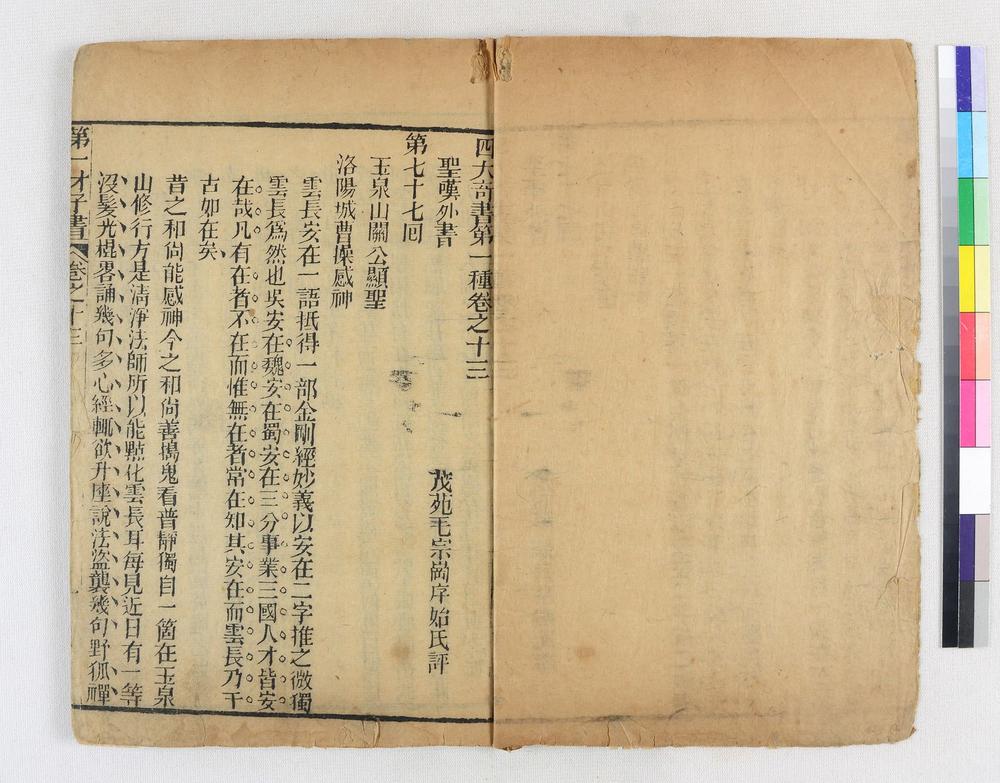 四大奇書第一種卷之十三
聖嘆外書
茂苑毛宗崗序始氏評
第七十七囘
玉泉山關公顯聖
洛陽城曹操感神
雲長安在一語抵得一部金剛經妙義以安在二字推之微獨
雲長爲然也吳安在魏安在蜀安在三分事業三國人才皆安
在哉凡有在者不在而惟無在者常在知其安在而雲長乃千
古如在矣
昔之和尙能感神今之和尙善搗鬼看普靜獨自一箇在玉泉
山修行方是淸淨法師所以能㸃化雲長耳每見近日有一等
沒髪光棍畧誦幾句多心經輒欲升座說法盜襲幾句野狐禪
第一才子書
卷之十三